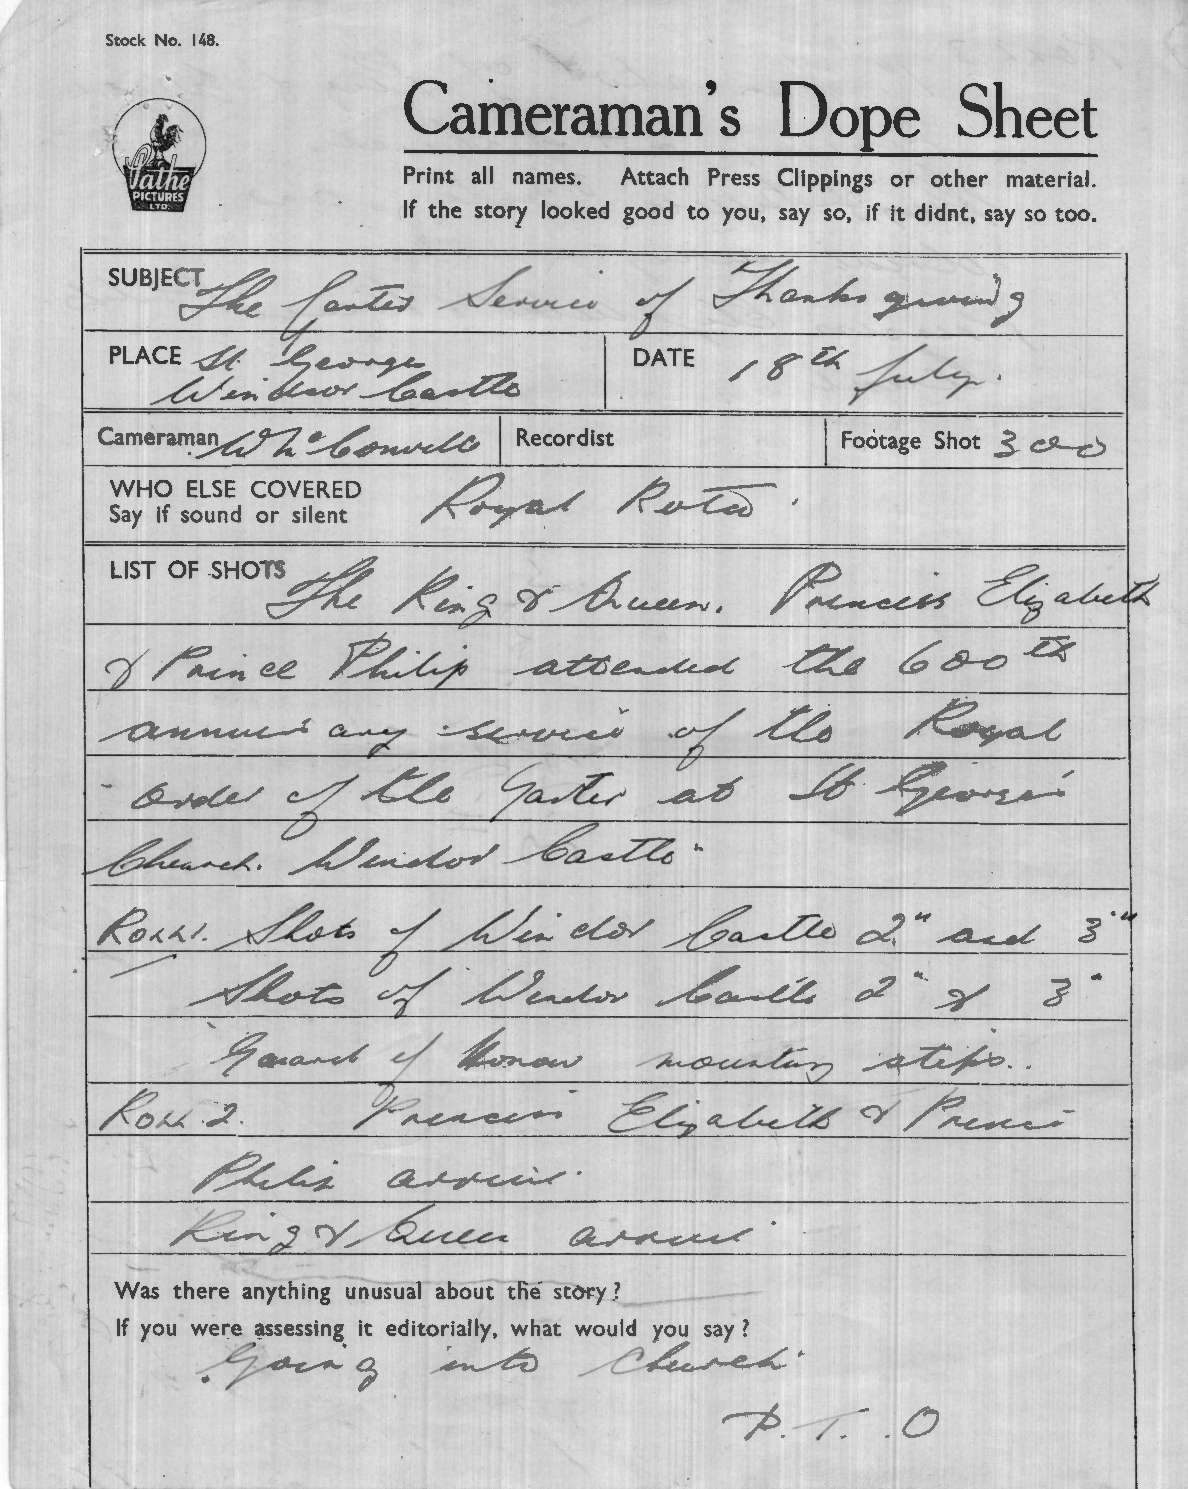 Stock No. 148.
Pathe
PICTURES
LTD.
Cameraman's Dope Sheet
Print all names. Attach Press Clippings or other material.
If the story looked good to you, say so, if it didnt, say so too.
SUBJECT The Garter Service of Thanksgiving
PLACE St. Georges
Windsor Castle
DATE 18th July.
Cameraman W McConville
Recordist
Footage Shot 300
WHO ELSE COVERED
Say if sound or silent
Royal Rota.
LIST OF SHOTS The King & Queen. Princess Elizabeth
& Prince Philip attended the 600th
anniversary service of the Royal
order of the Garter at St George's
Church. Windsor Castle.
Roll 1. Shots of Windsor Castle 2" and 3"
Shots of Windsor Castle 2" & 3"
Guard of Honour mounting steps..
Roll 2. Princess Elizabeth & Prince
Philip arrive.
King & Queen arrive
Was there anything unusual about the story?
If you were assessing it editorially, what would you say?
Going into Church.
P.T.O